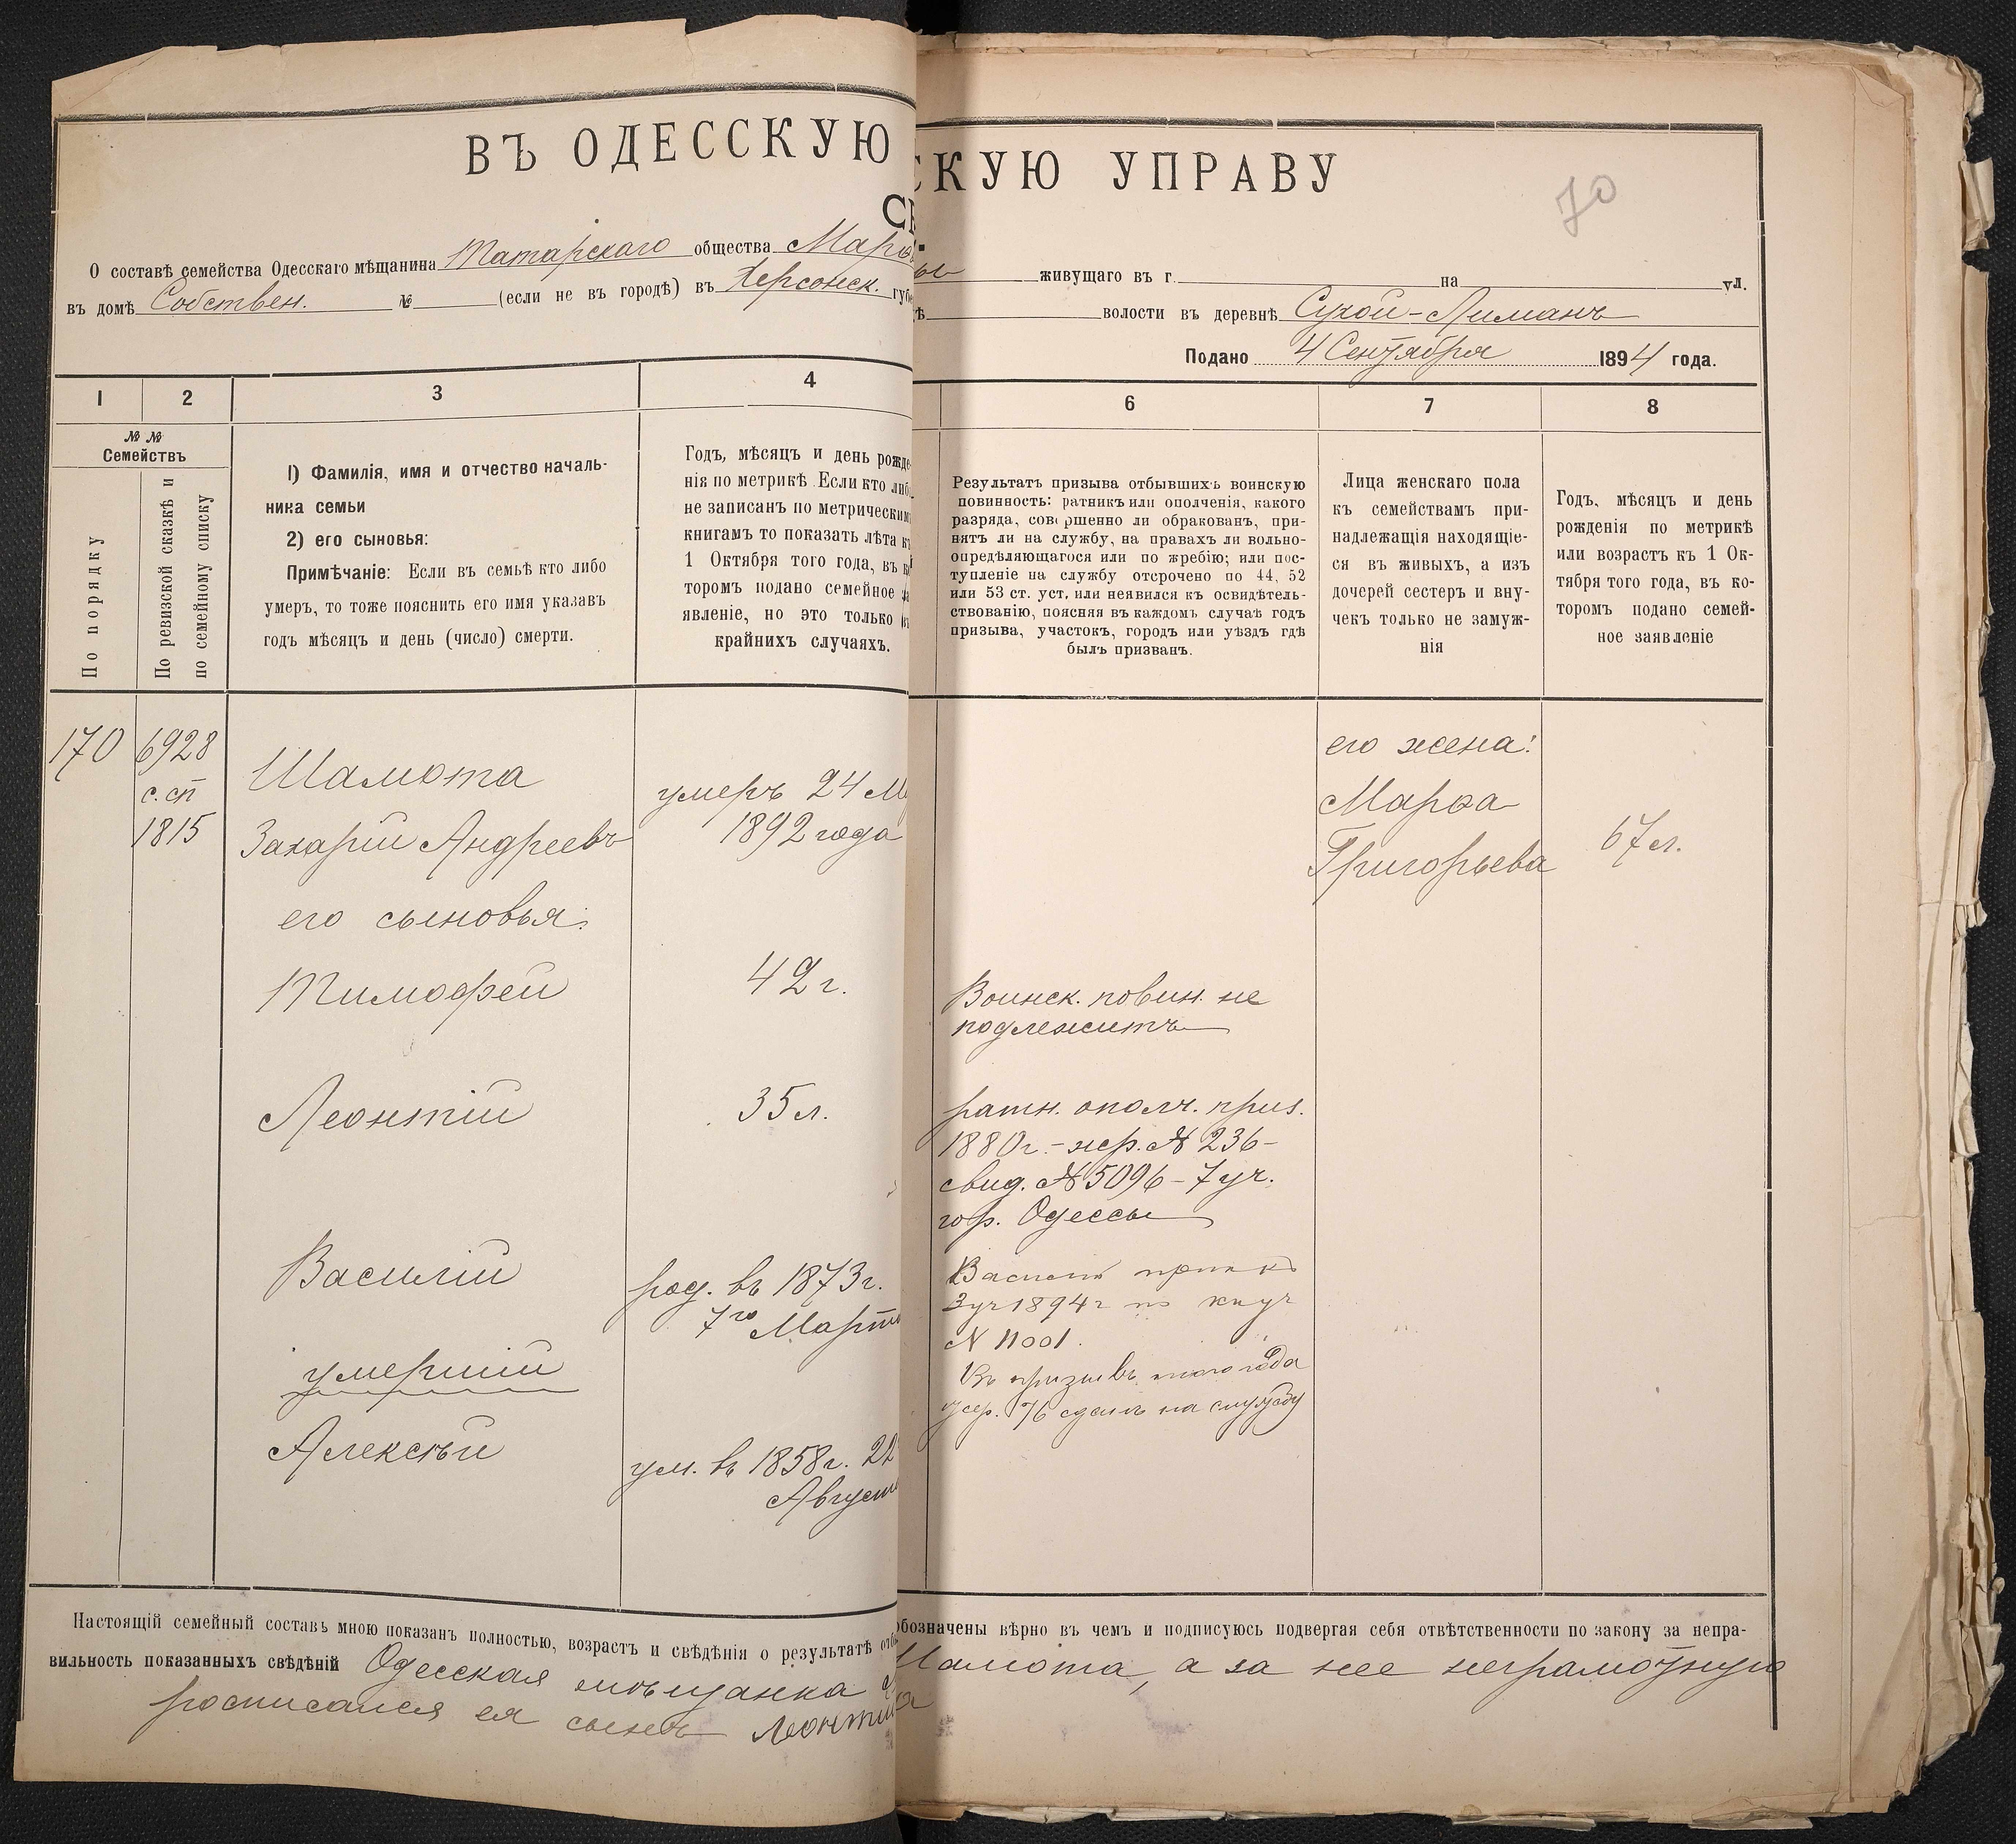 ВЪ ОДЕССКУЮ
СКУЮ УПРАВУ
70
О составѣ семейства Одесскаго мѣщанина Татарскаго общества
живущаго въ г. на ул.
въ домѣ Собствен. № (если не въ городѣ) въ Херсонск.
волости въ деревнѣ Сухой-Лиманъ
Подано 4 Сентября 1894 года.
1 2 3 4
6 7 8
№ №
Семействъ
По порядку
По ревизской сказкѣ и
по семейному списку
1) Фамилія, имя и отчество началь-
ника семьи
2) его сыновья:
Примѣчаніе: Если въ семьѣ кто либо
умеръ, то тоже пояснить его имя указавъ
годъ мѣсяцъ и день (число) смерти.
Годъ, мѣсяцъ и день рожде-
нія по метрикѣ. Если кто либ
не записанъ по метрическим
книгамъ то показать лѣта к
1 Октября того года, въ к
торомъ подано семейное за
явленіе, но это только въ
крайнихъ случаяхъ.
Результатъ призыва отбывшихъ воинскую
повинность: ратникъ или ополченія, какого
разряда, совершенно ли обракованъ, при-
нятъ ли на службу, на правахъ ли вольно-
опредѣляющагося или по жребію; или пос-
тупленіе на службу отсрочено по 44, 52
или 53 ст. уст, или неявился къ освидѣтель-
ствованію, поясняя въ каждомъ случаѣ годъ
призыва, участокъ, городъ или уѣздъ гдѣ
былъ призванъ.
Лица женскаго пола
къ семействамъ при-
надлежащія находящіе-
ся въ живыхъ, а изъ
дочерей сестеръ и вну-
чекъ только не замуж-
нія
Годъ, мѣсяцъ и день
рожденія по метрикѣ
или возрастъ къ 1 Ок-
тября того года, въ ко-
торомъ подано семей-
ное заявленіе
170
6928
с. сп
1815
Шамота
Захарій Андреевъ
умеръ 24 М
1892 года
его жена:
Марѳа
Григорьева
67 л.
его сыновья:
Тимофей
42 г.
Воинск. повин. не
подлежитъ
Леонтій
35 л.
ратн. ополч. приз.
1880 г. – жер. № 236 –
свид. № 5096 – 7 уч.
гор. Одессы
Василій
род. въ 1873 г.
7го Марта
Василій
3 уч 1894 г по
N 11001.
Въ призывъ года
жер. 76 сданъ на службу
умершій
Алексѣй
ум. въ 1858 г. 22
Август
Настоящій семейный составъ мною показанъ полностью, возрастъ и свѣдѣнія о результатѣ
обозначены вѣрно въ чемъ и подписуюсь подвергая себя отвѣтственности по закону за непра-
вильность показанныхъ свѣдѣній Одесская мѣщанка
Шамота, а за нее неграмотную
росписался ея сынъ Леонтій